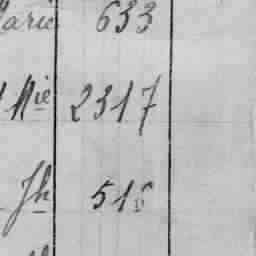 Marie 633
Nie 2317
Jh 516